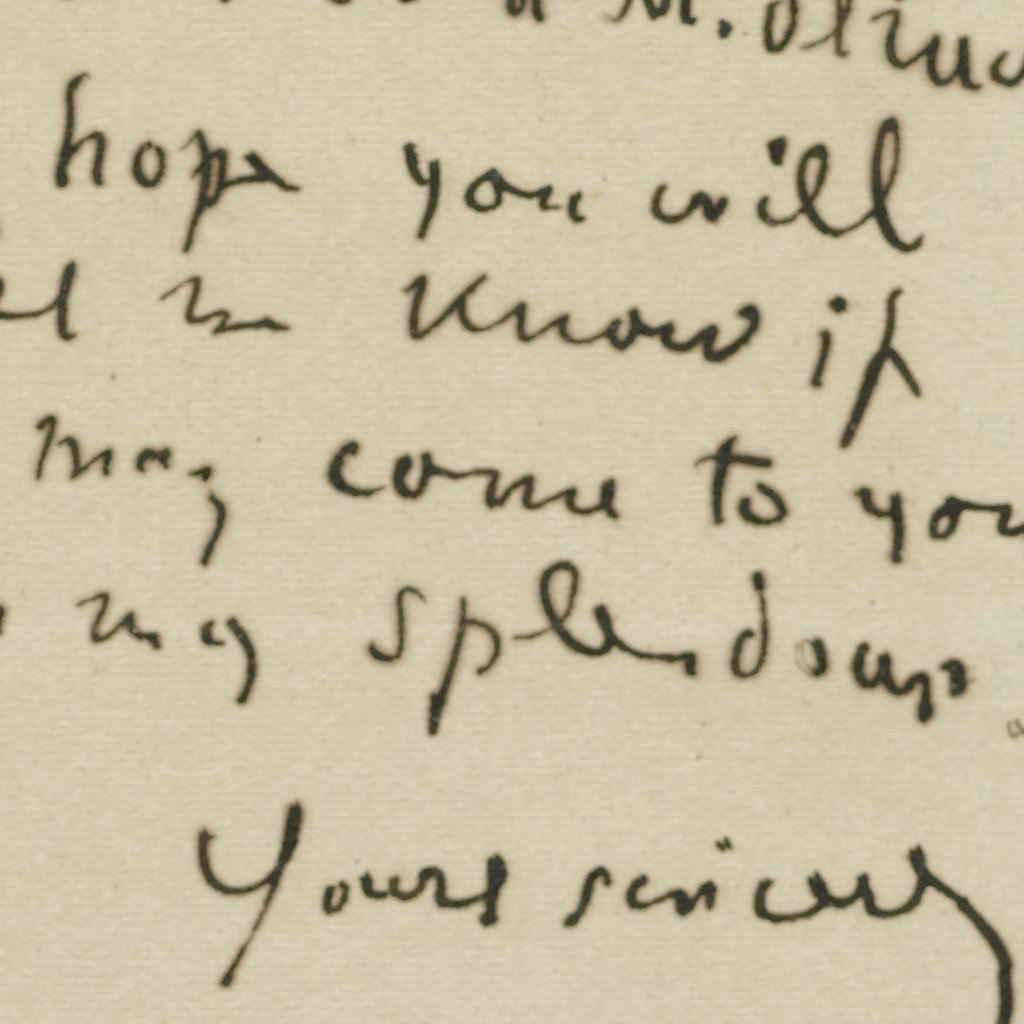 hope you will
me know if
may come to you
my splendours
Yours sincerely